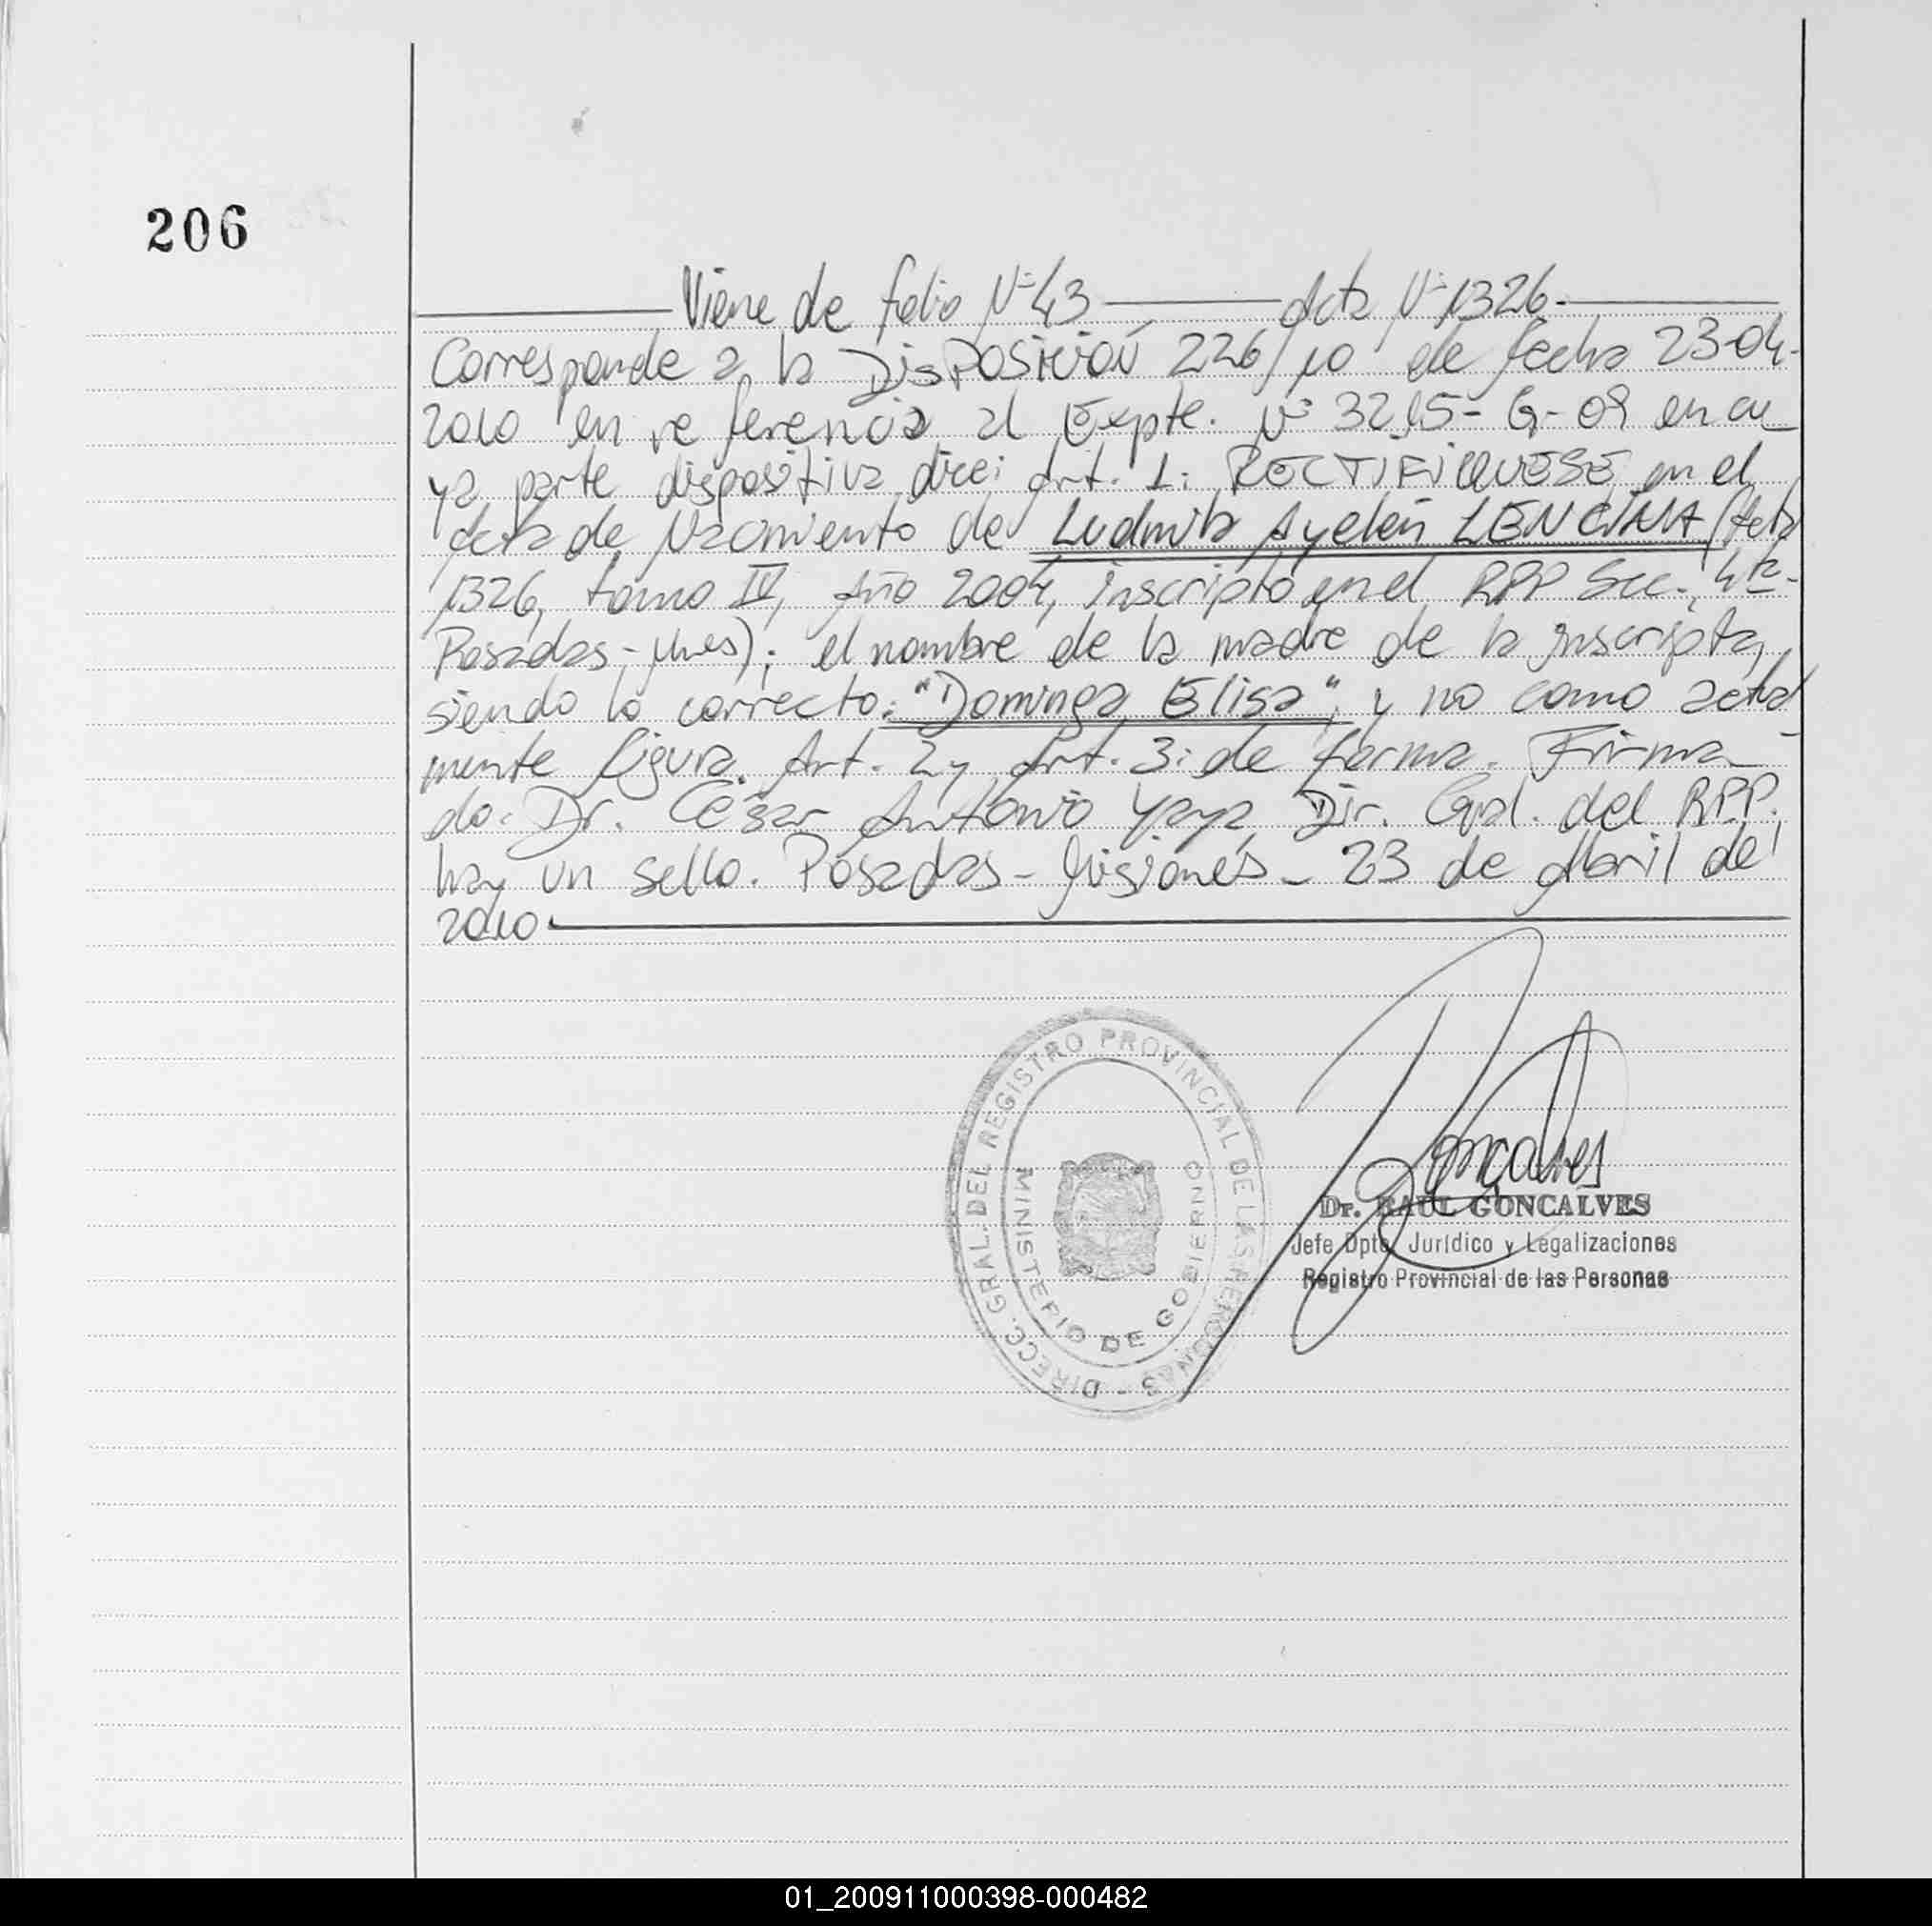 206
Viene de folio Nº 43 Acta Nº 1326.
Corresponde a la DisPOSICIÓN 226/10 de fecha 23-04-
2010 en referencia al Expte. Nº 3215-G-09 en cu
ya parte dispositiva dice: Art. 1: RECTIFIQUESE en el
Acta de Nacimiento de Ludmila Ayelén LENCINA (Acta
1326, tomo IV, Año 2004, inscripto en el RPP Secc. 4ta-
Posadas-Mnes); el nombre de la madre de la inscripta,
siendo lo correcto: "Dominga Elisa"; y no como actual
mente figura. Art. 2 y Art. 3: de forma. Firma_
do. Dr. César Antonio Yaya, Dir. Gral. del RPP.
hay un sello. Posadas - Misiones - 23 de Abril del
2010
DIRECC. GRAL. DEL REGISTRO PROVINCIAL DE LAS PERSONAS -
MINISTERIO DE GOBIERNO
Goncalves
Dr. RAUL GONCALVES
Jefe Dpto. Jurídico y Legalizaciones
Registro Provincial de las Personas
01_200911000398-000482